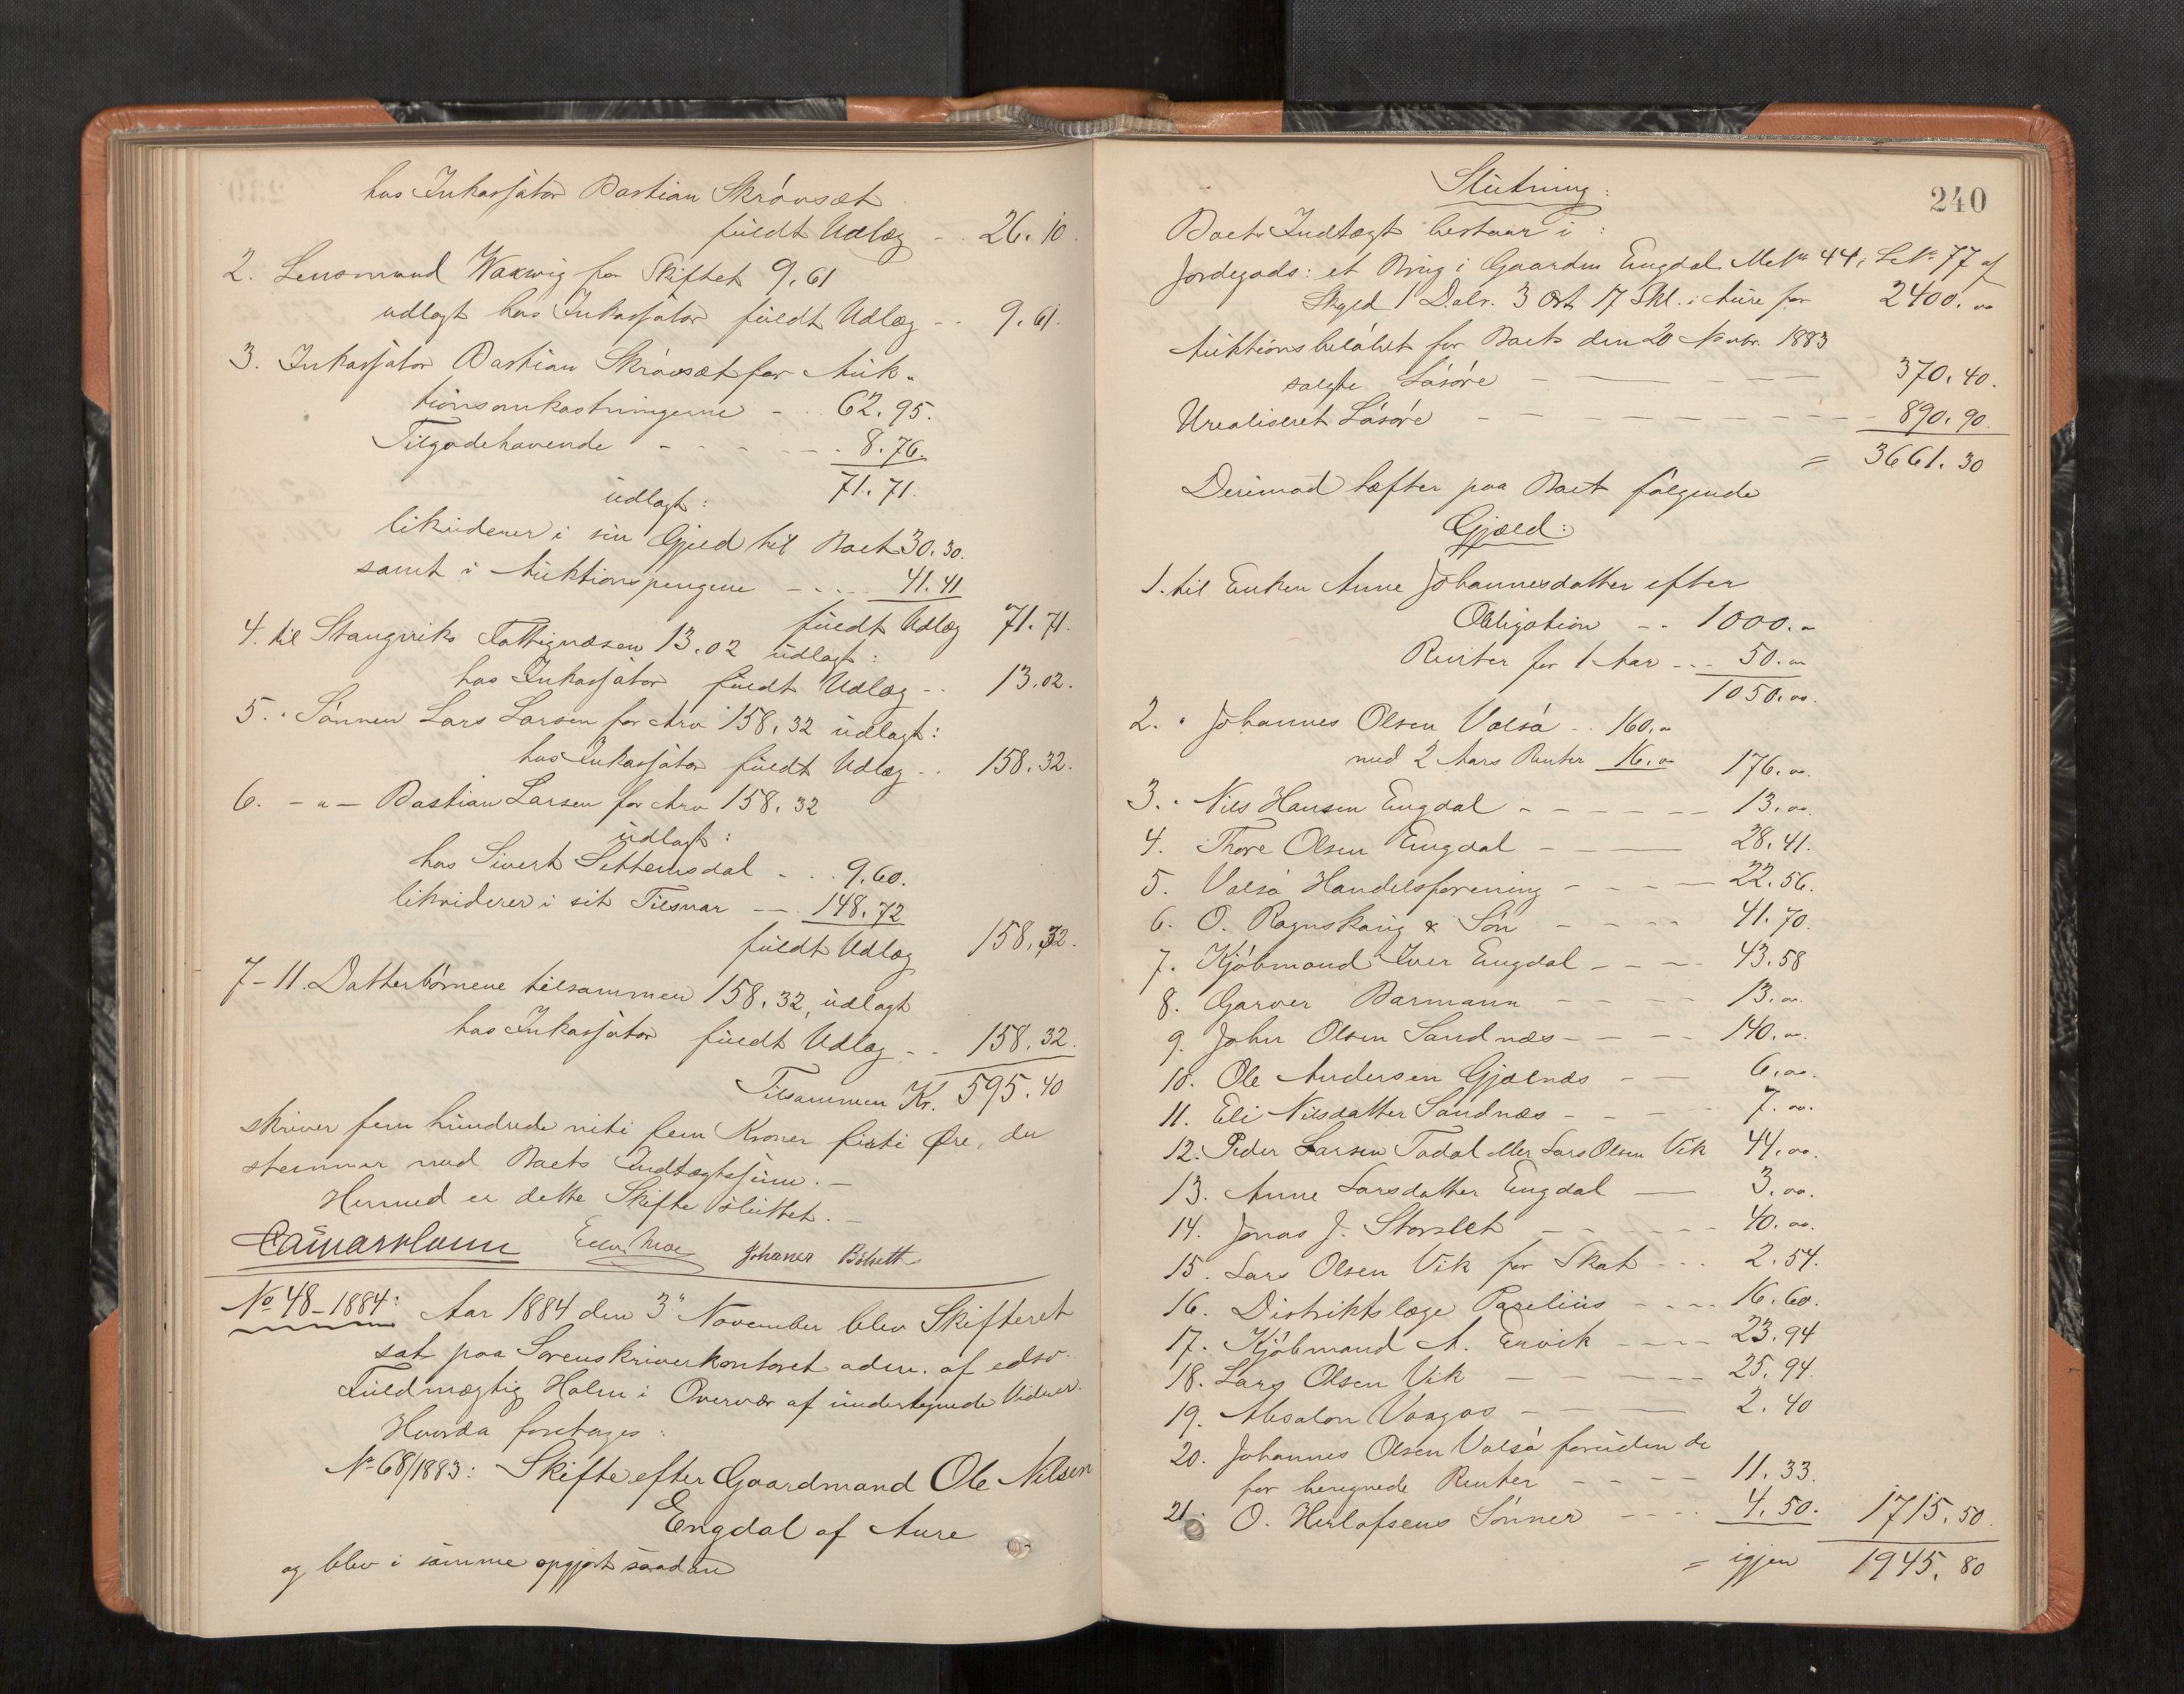 hos Inkassator Bastian Skrøvset
fuldt Udlæg - . 26. 10.
2. Lensmand Waxwig for Skiftet 9. 61
udlagt hos Inkassator fuldt Udlæg - . 9. 61.
3. Inkassator Bastian Skrøvset for Auk-
tionsomkostningerne - . . 62. 95.
Tilgodehavende - - - - - . 8. 76.
71. 71.
udlagt:
likviderer i sin Gjæld til Boet 30. 30.
samt i Auktionspengene - . . . 41. 41
fuldt Udlæg 71. 71.
4. til Stangviks Fattigvæsen 13. 02 udlagt:
hos Inkassator fuldt Udlæg - . 13. 02.
5. " Sønnen Lars Larsen for Arv 158. 32 udlagt:
hos Inkassator fuldt Udlæg . . 158. 32.
6. - " - Bastian Larsen for Arv 158. 32
udlagt:
hos Sivert Settemsdal - . . 9. 60.
likviderer i sit Tilsvar - - . 148. 72
fuldt Udlæg 158. 32.
7-11. Datterbørnene tilsammen 158. 32, udlagt
hos Inkassator fuldt Udlæg - . 158. 32.
Tilsammen Kr. 595. 40
skriver fem hundrede niti fem Kroner firti Øre, der
stemmer med Boets Indtægtssum. -
Hermed er dette Skifte sluttet. -
Johanes Bölsett
No 48-1884: Aar 1884 den 3' November blev Skifteret
sat paa Sorenskriverkontoret adm. af edsv.
Fuldmægtig Holm i Overvær af undertegnede Vidner.
Hvorda foretages:
No 68/1883: Skifte efter Gaardmand Ole Nilsen
Engdal af Aure
og blev i samme opgjort saadan
240
Slutning:
Boets Indtægt bestaar i:
Jordegods: et Brug i Gaarden Engdal Me No 44, L No 77 af
Skyld 1 Dalr. 3 Ort 17 Skl. i Aure for 2400. "
Auktionsbeløbet for Boets den 20 Novbr. 1883
solgte Løsøre - - - - 370. 40.
Urealiseret Løsøre - - - - - 890. 90.
= 3661. 30
Derimod hæfter paa Boet følgende
Gjæld:
1. til Enken Anne Johannesdatter efter
Obligation - . 1000. "
Renter for 1 Aar - - . 50. "
1050. "
2. " Johannes Olsen Valsø . . 160. "
med 2 Aars Renter 16. " 176. "
3. " Nils Hansen Engdal - - - - - - 13. "
4. Thore Olsen Engdal - - - 28. 41.
5. Valsø Handelsforening - - - - 22. 56.
6. O. Ragnskaug & Søn - - - - 41. 70.
7. Kjøbmand Iver Engdal - - - - 43. 58
8. Garver Barmann - - - - 13. "
9. John Olsen Sandnæs - - - - 140. "
10. Ole Andersen Gjælnæs - - 6. "
11. Eli Nilsdatter Sandnæs - - - - 7. "
12. Peder Larsen Todal eller Lars Olsen Vik 44. "
13. Anne Larsdatter Engdal - 3. "
14. Jonas J. Storslet - - - - - 40. "
15. Lars Olsen Vik for Skat - - . 2. 54.
16. Distriktslæge Parelius - - - - 16. 60.
17. Kjøbmand A. Ervik - - - - 23. 94
18. Lars Olsen Vik - - - - - 25. 94.
19. Absalon Vaagos - - - - 2. 40
20. Johannes Olsen Valsø foruden de
før beregnede Renter - - - - 11. 33.
21. O. Herlofsens Sønner - - - . 4. 50. 1715. 50.
= igjen 1945. 80